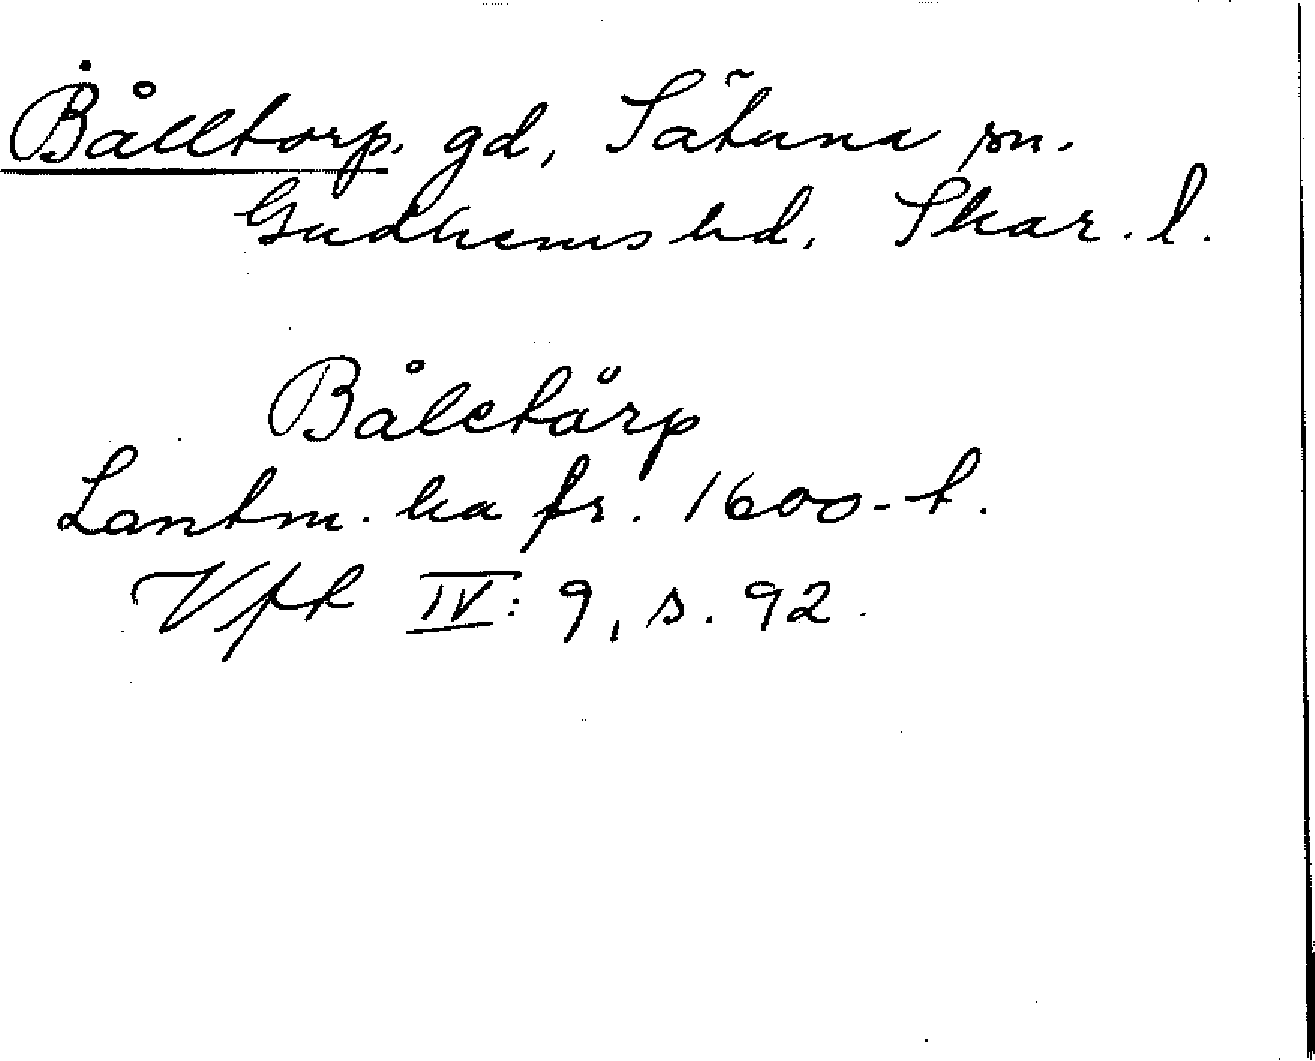 Bålltorp. gd, Sätuna sn.
Gudhems hd. Skar. l.
Båletörp
Lantm. ka fr. 1600-t.
Vft IV: 9, s. 92.